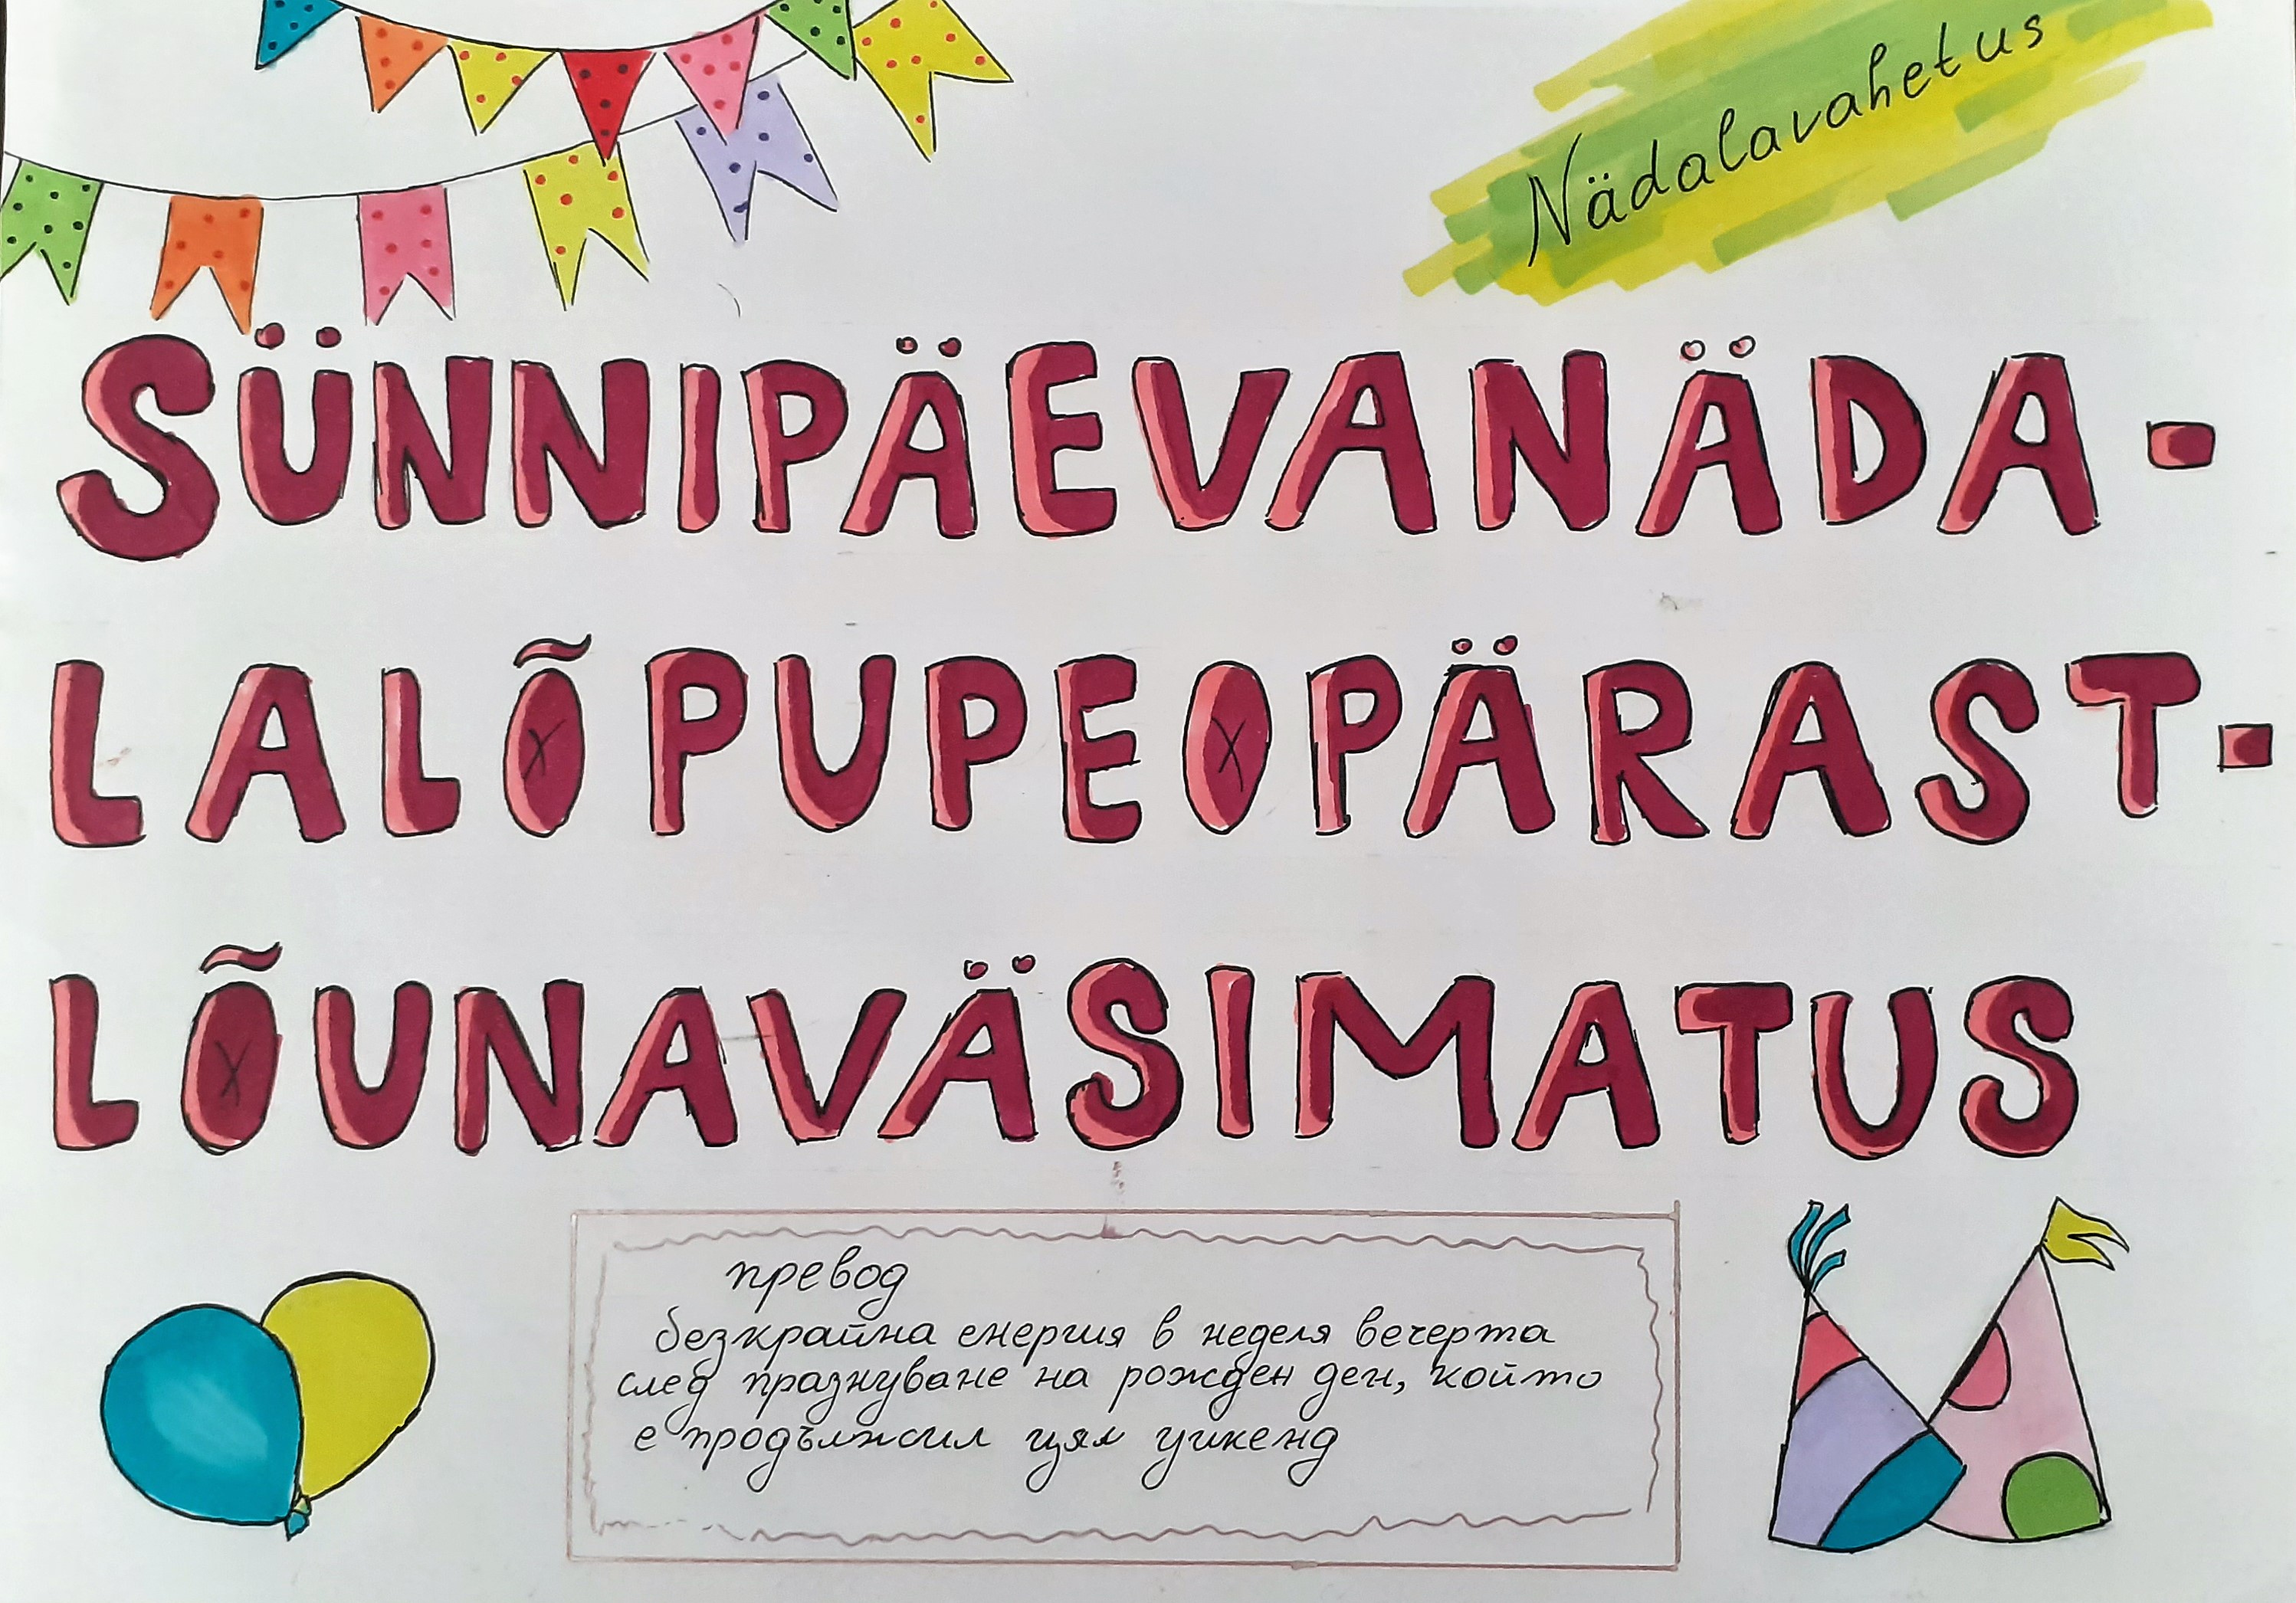 Nädalavahetus
SÜNNIPÄEVANÄDA-
LALÕPUPEOPÄRAST-
LÕUNAVÄSIMATUS
превод
безкрайна енергия в неделя вечерта
след празнуване на рожден ден, който
е продължил цял уикенд